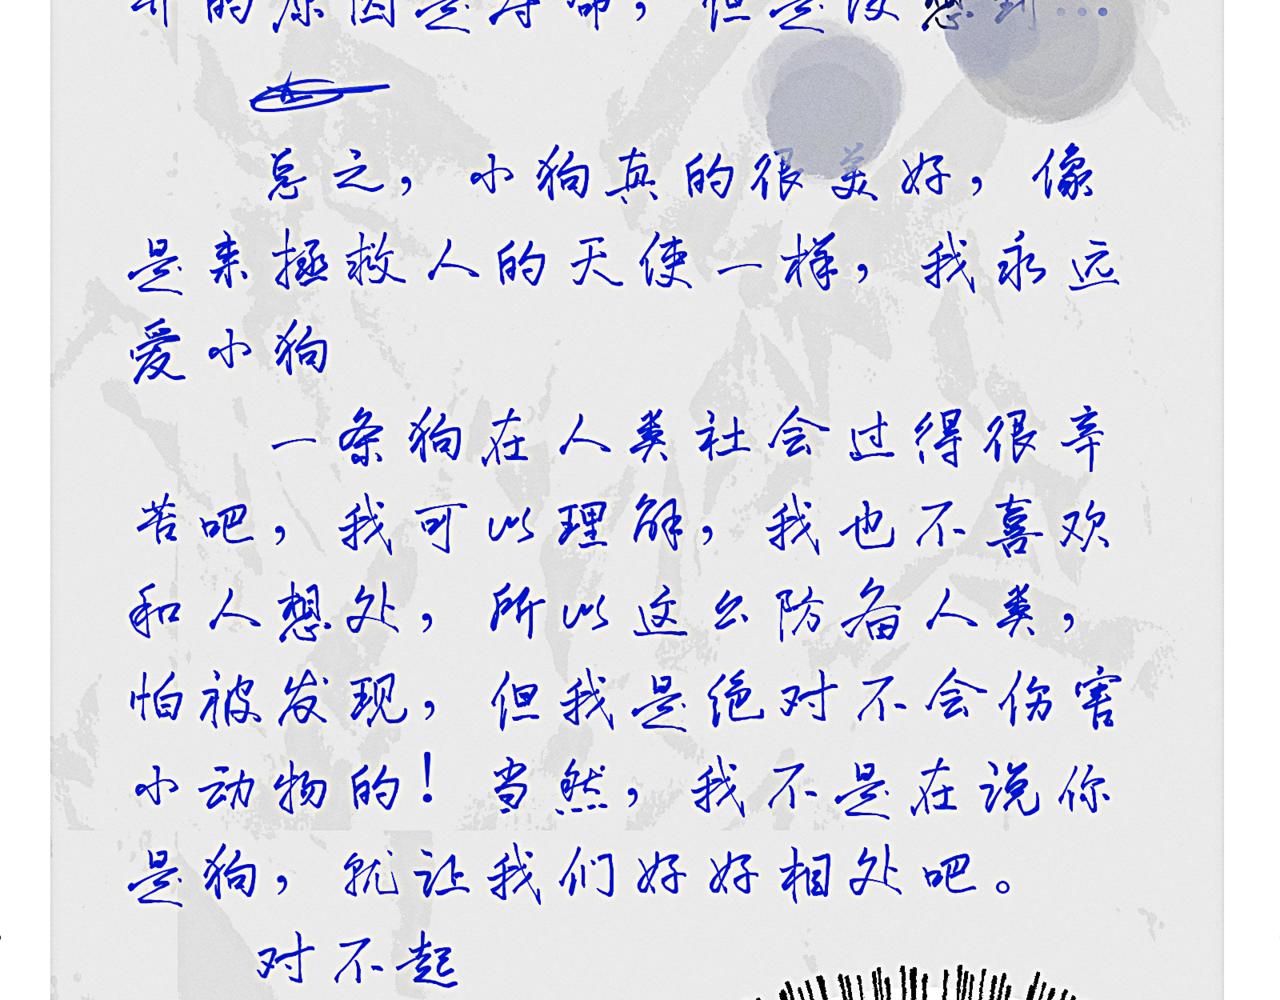 的原因是寿命，但是没想到…
总之，小狗真的很美好，像
是来拯救人的天使一样，我永远
爱小狗
一条狗在人类社会过得很辛
苦吧，我可以理解，我也不喜欢
和人想处，所以这么防备人类，
怕被发现，但我是绝对不会伤害
小动物的！当然，我不是在说你
是狗，就让我们好好相处吧。
对不起